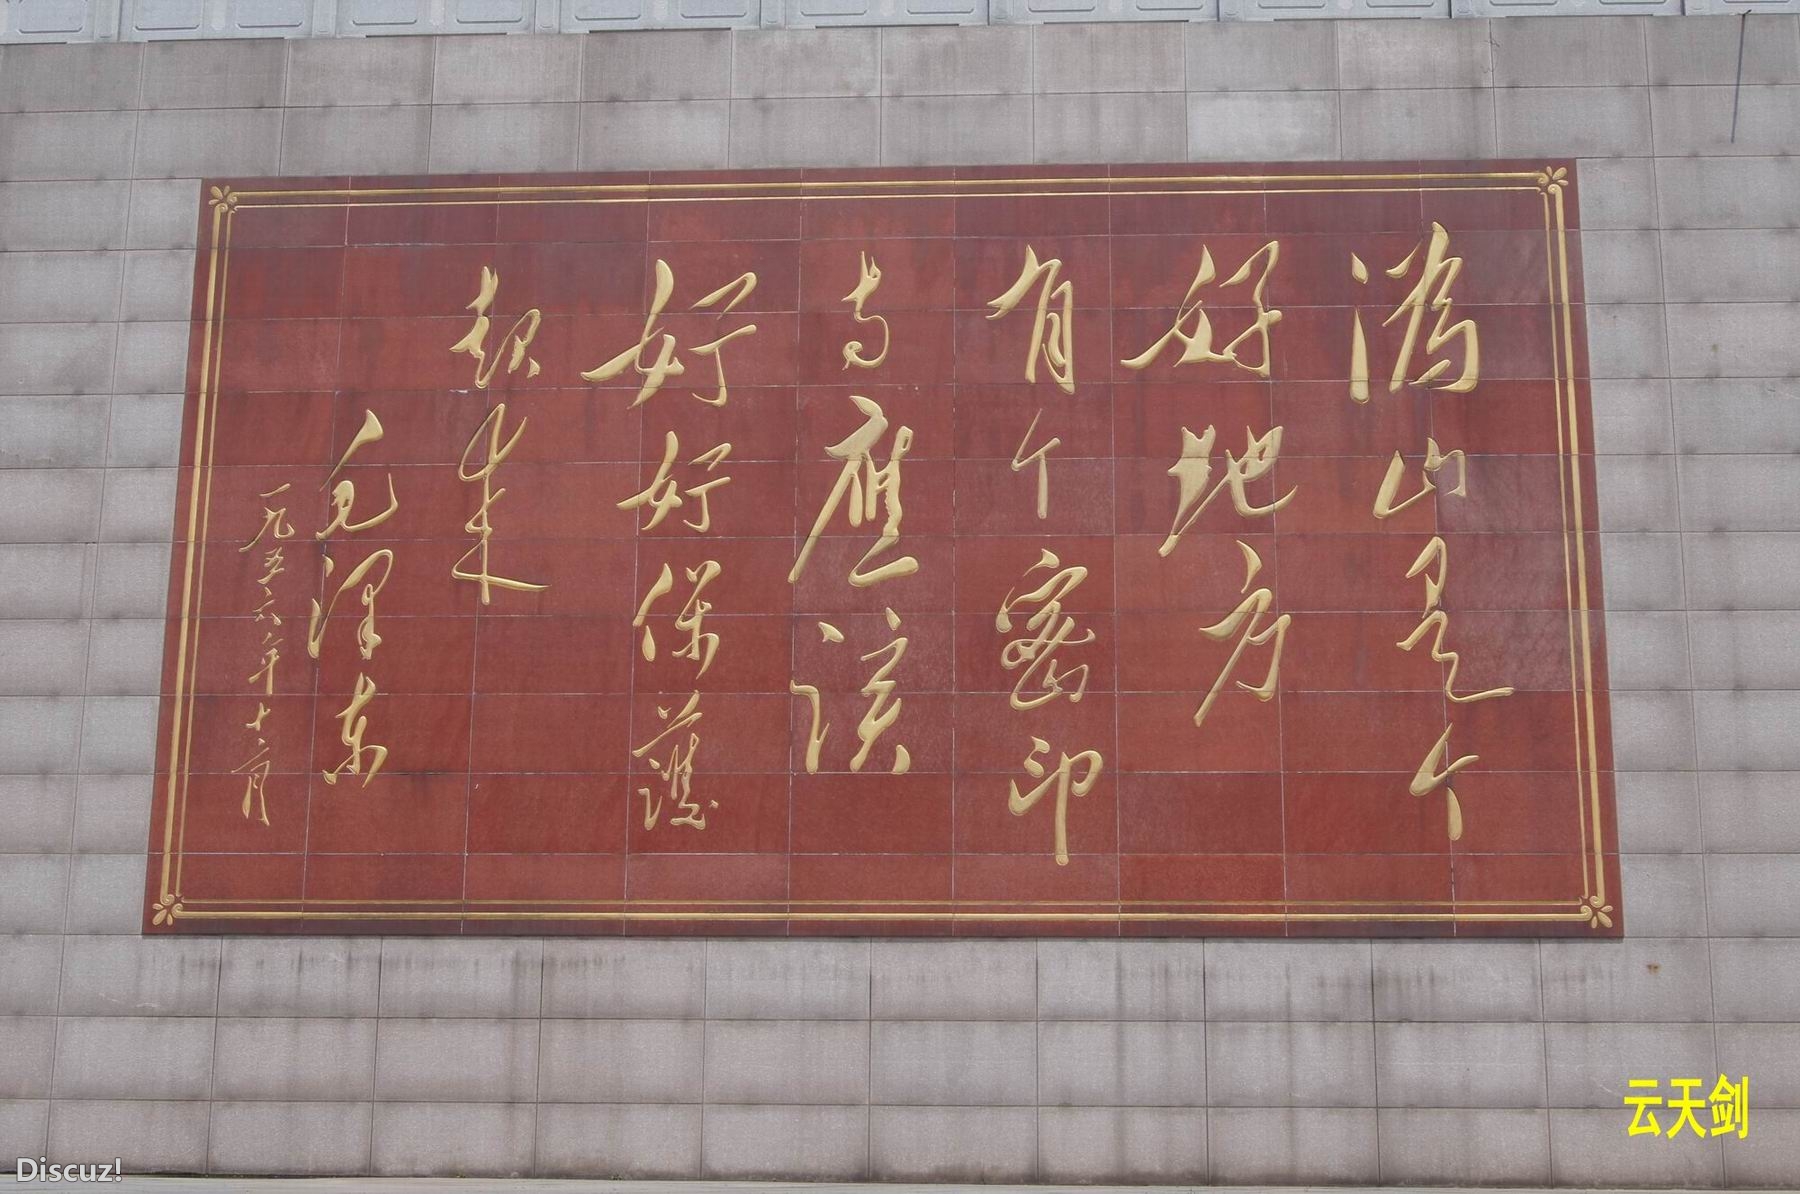 沩山是个
好地方
有个密印
寺應该
好好保護
起来
毛泽东
一九五六年十二月
云天剑
Discuz!